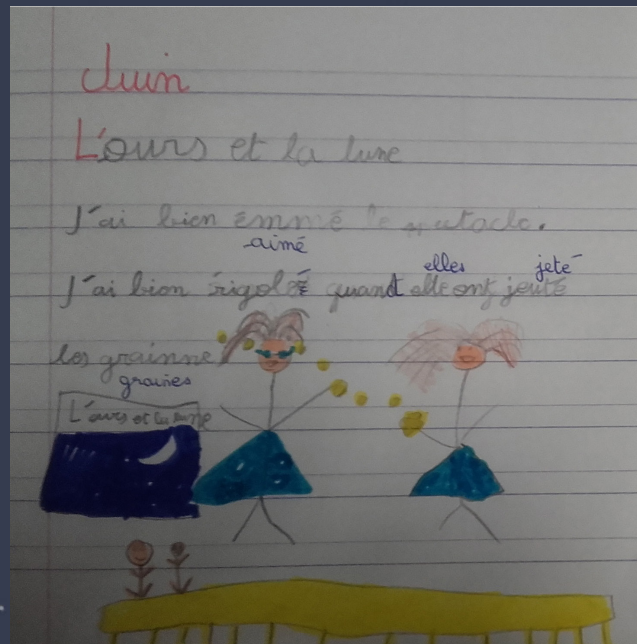 Juin
L'ours et la lune
J'ai bien emmé le
aimé
elles jeté
J'ai bien rigolé quand elle ont jeuté
les grainne
graines
L'ours et la lune